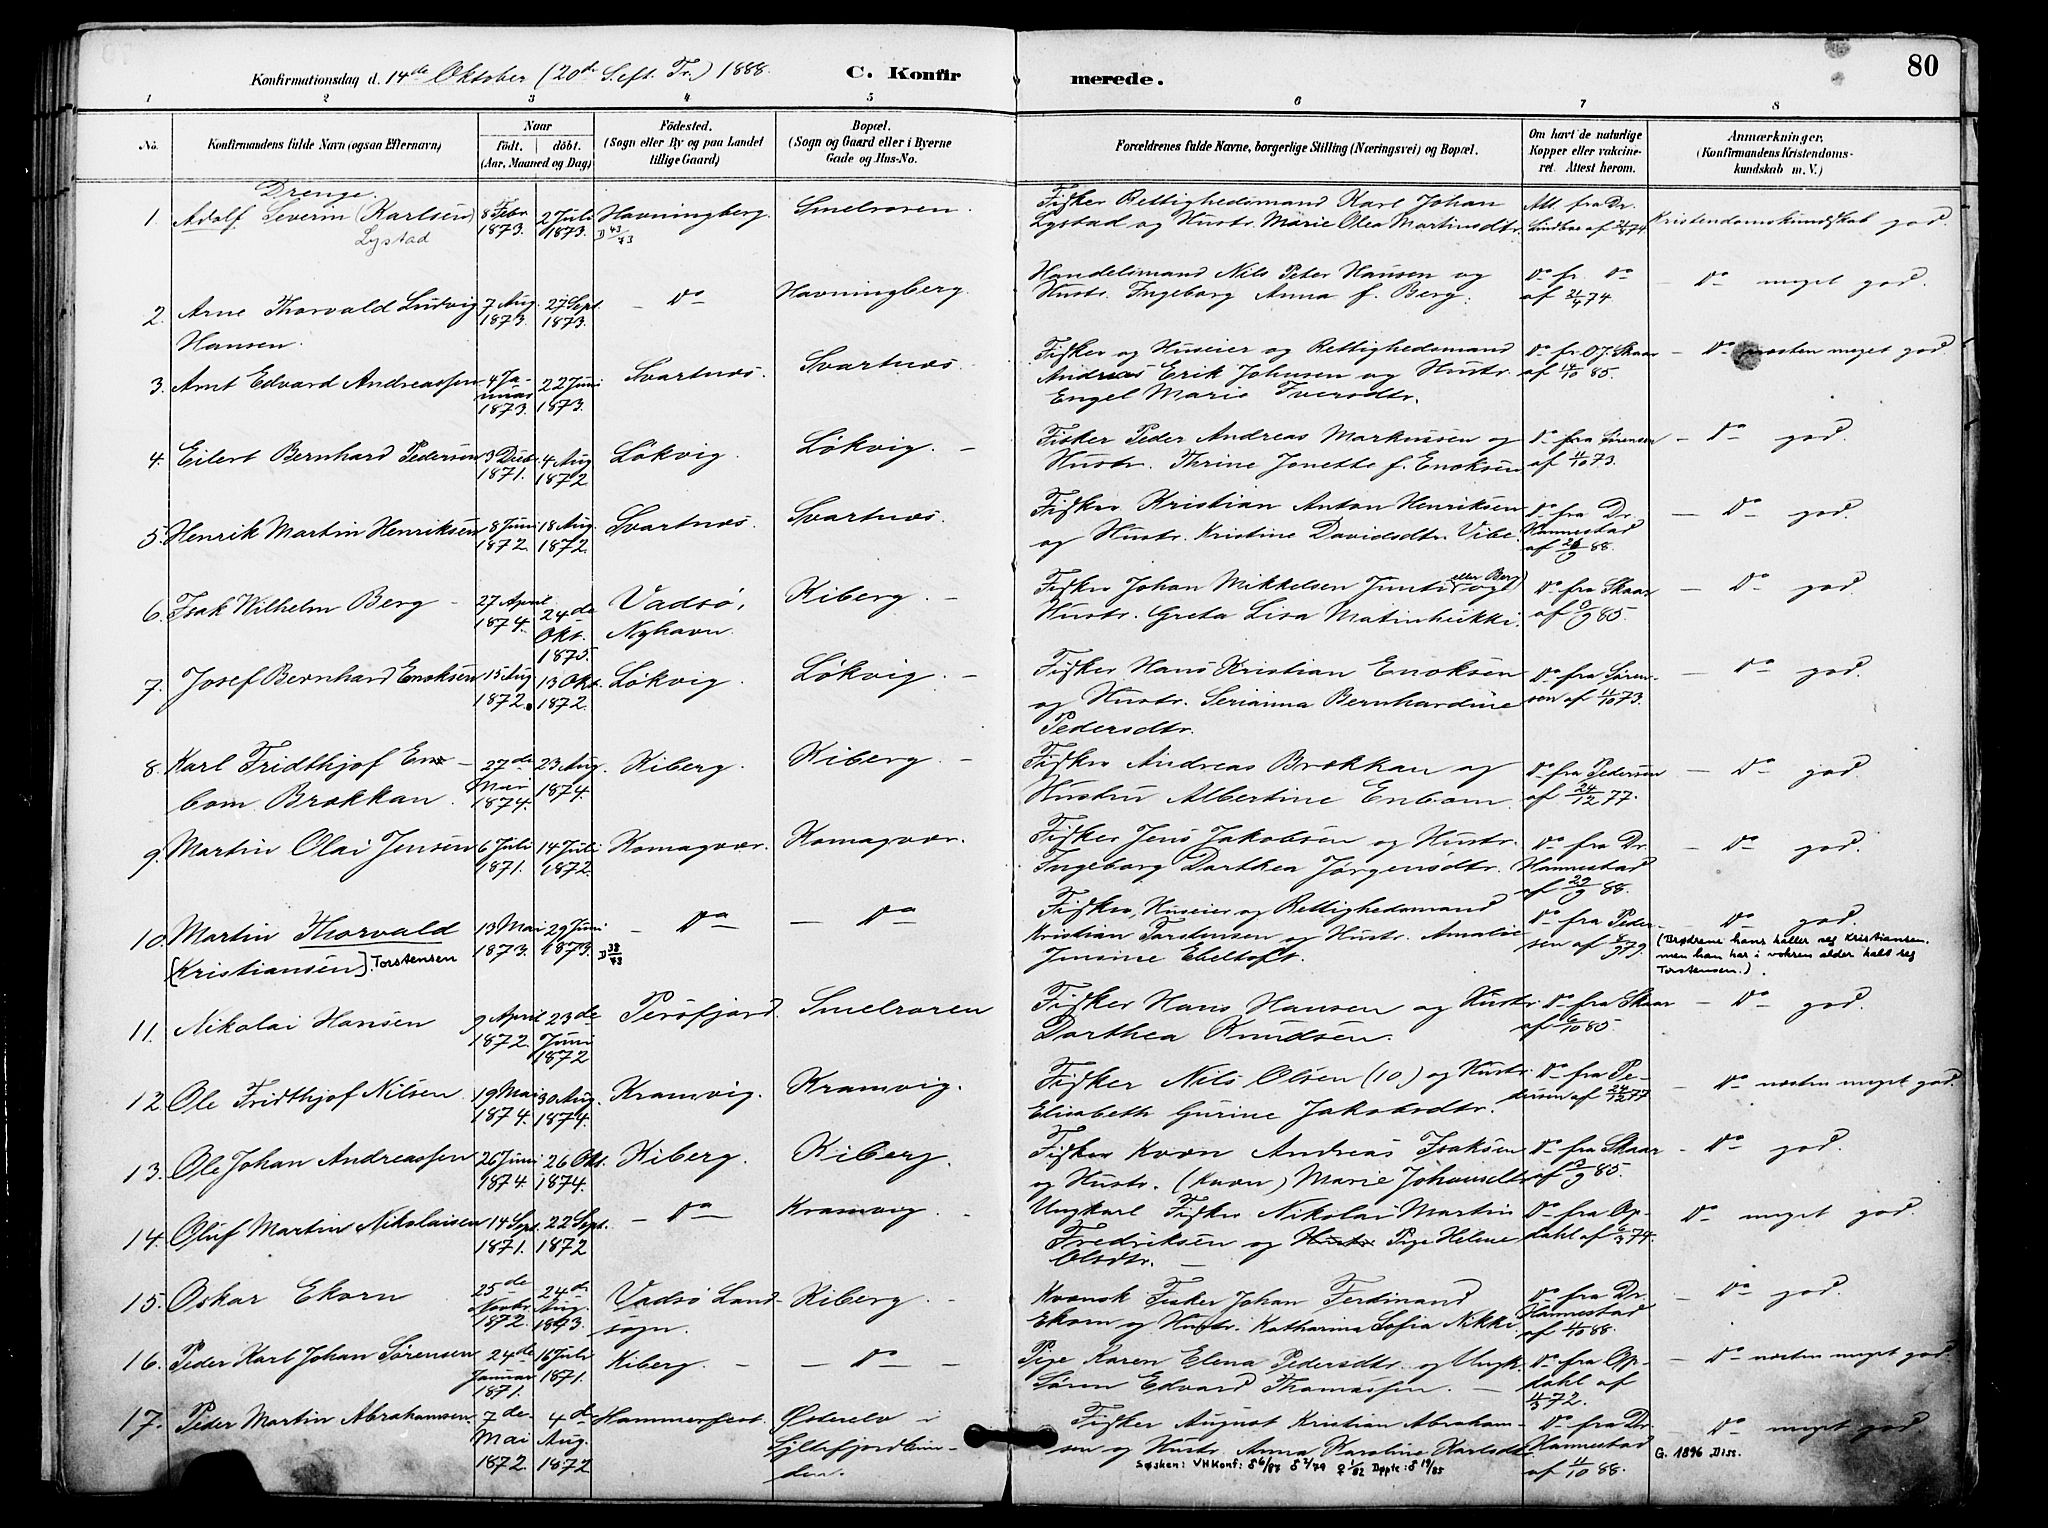 Konfirmationsdag d. 14de Oktober (20de S. eft. Tr.) 1888. C. Konfir merede. 80
1 2 3 4 5 6 7 8
No. Konfirmandens fulde Navn (ogsaa Efternavn) Naar födt. döbt. (Aar, Maaned og Dag) Födested. (Sogn eller By og paa Landet tillige Gaard) Bopæl. (Sogn og Gaard eller i Byerne Gade og Hus-No. Forældrenes fulde Navne, borgerlige Stilling (Næringsvei) og Bopæl. Om havt de naturlige Kopper eller vakcineret. Attest herom. Anmærkninger, (Konfirmandens Kristendomskundskab m. V.)
Drenge
1. Adolf Severin (Karlsen) Lystad 8 Febr 1873. 2 Juli 1873. Havningberg. D 43/73 Smelroren. Fisker Rettighedsmand Karl Johan
Lystad og Hustr. Marie Olea Martinsdtr. Att. fra Dr. Kristendomskundskab god.
2. Arne Thorvald Ludvig 7 Aug. 1873. 27 Sept. 1873. – Do Havningberg. Handelsmand Nils Peter Hansen og
Hansen. Hustr. Ingeborg Anna f. Berg. Do fr. Do af 21/4 74. – Do meget god.
3. Arnt Edvard Andreassen 4 Januar 1873. 22 Juni 1873. Svartnæs. Svartnæs. Fisker og Huseier og Rettighedsmand
Andreas Erik Johnsen og Hustr.
Engel Marie Iversdtr. Do fr. O.J. Skaar af 14/10 85. – Do næsten meget god
4. Eilert Bernhard Pedersen 3 Dcbr 1871. 4 Aug 1872 Løkvig. Løkvig. – Fisker Peder Andreas Markussen og
Hustr. Thrine Jonette f. Enoksen Do fra Sørensen af 11/10 73. – Do god.
5. Henrik Martin Henriksen 8 Juni 1872. 18 Aug. 1872. Svartnæs. Svartnæs. Fisker Kristian Anton Henriksen
og Hustr. Kristine Davidsdtr. Vibe. Do fra Dr. Hannestad af 26/9 88. – Do god.
6. Isak Wilhelm Berg – 27 April 1874. 24de Okt. 1875. Vadsö, Nyhavn. Kiberg. – Fisker Johan Mikkelsen Junti (eller Berg) og
Hustr. Greta Lisa Matinheikki. Do fra Skaar af 9/9 85. – Do god.
7. Josef Bernhard Enoksen 15 Aug 1872. 13 Okt. 1872. Løkvig. Løkvig. – Fisker Hans Kristian Enoksen
og Hustr. Serianna Bernhardine
Pedersdtr. Do fra Sørensen af 11/10 73. – Do god.
8. Karl Fridthjof Enbom Brækkan. 27de Mai 1874. 23 Aug. 1874. Kiberg. Kiberg. – Fisker Andreas Brækkan og
Hustru Albertine Enbom. Do fra Pedersen af 24/12 77. – Do god
9. Martin Olai Jensen 6 Juli 1871. 14 Juli 1872. Komagvær. Komagvær. Fisker Jens Jakobsen og Hustr.
Ingeborg Dorthea Jørgensdtr. Do fra Dr. Hannestad af 29/9 88. – Do god.
10. Martin Thorvald [Kristiansen]. Torstensen 13 Mai 1873. 29 Juni 1873. – Do D 38/73 – Do Fisker, Huseier og Rettighedsmand
Kristian Torstensen og Hustr. Amalie
Jensine Ebeltoft. Do fra Pedersen af 6/9 79. – Do god.
(Brødrene hans kaller seg Kristiansen.
men han har i voksen alder kalt seg
Torstensen.)
11. Nikolai Hansen 9 April 1872. 23de Juni 1872 Persfjord. Smelroren Fisker Hans Hansen og Hustr.
Dorthea Knudsen. Do fra Skaar af 6/10 85. – Do god.
12. Ole Fridthjof Nilsen. 19 Mai 1874. 30 Aug. 1874. Kramvig. Kramvig. Fisker Nils Olsen (10.) og Hustr.
Elisabeth Gurine Jakobsdtr. Do fra Pedersen af 24/12 77 – Do næsten meget god.
13. Ole Johan Andreassen 26 Juni 1874. 26 Okt. 1874. Kiberg. Kiberg. Fisker Kvæn Andreas Isaksen
og Hustr. (Kvæn) Marie Johansdtr. Do fra Skaar af 9/9 85. – Do god.
14. Oluf Martin Nikolaisen 14 Sept. 1871. 22 Sept. 1872 – Do Kramvig. – Ungkarl Fisker Nikolai Martin
Fredriksen og Hustr. Pige Helene
Olsdtr. – Do fra Opdahl af 6/3 74. Do meget god.
15. Oskar Ekorn 25de Novbr. 1872. 24de Aug. 1873. Vadsö Landsogn. Kiberg. – Kvænsk Fisker Johan Ferdinand
Ekorn og Hustr. Katharina Sofia Nikki Do fra Dr. Hannestad af 4/10 88. – Do god.
16. Peder Karl Johan Sørensen 24de Januar 1871. 16 Juli 1871. Kiberg. – – Do – Pige Karen Elena Pedersdtr. og Ungk.
Søren Edvard Thomassen. – Do fra Opdahl af 4/5 72. – Do næsten meget god.
17. Peder Martin Abrahamsen 7de Mai 1872. 4de Aug. 1872 Hammerfest. Østerelv i Syltefjordbunden. Fisker August Kristian Abrahamsen og Hustr. Anna Karoline Karlsdtr. Do fra Dr. Hannestad af 11/10 88. – Do meget god
Søsken: VH Konf: ♂ 6/87 ♂ 2/79 ♀ 1/82 Døpte: ♂ 19/85 G. 1896 Diss.